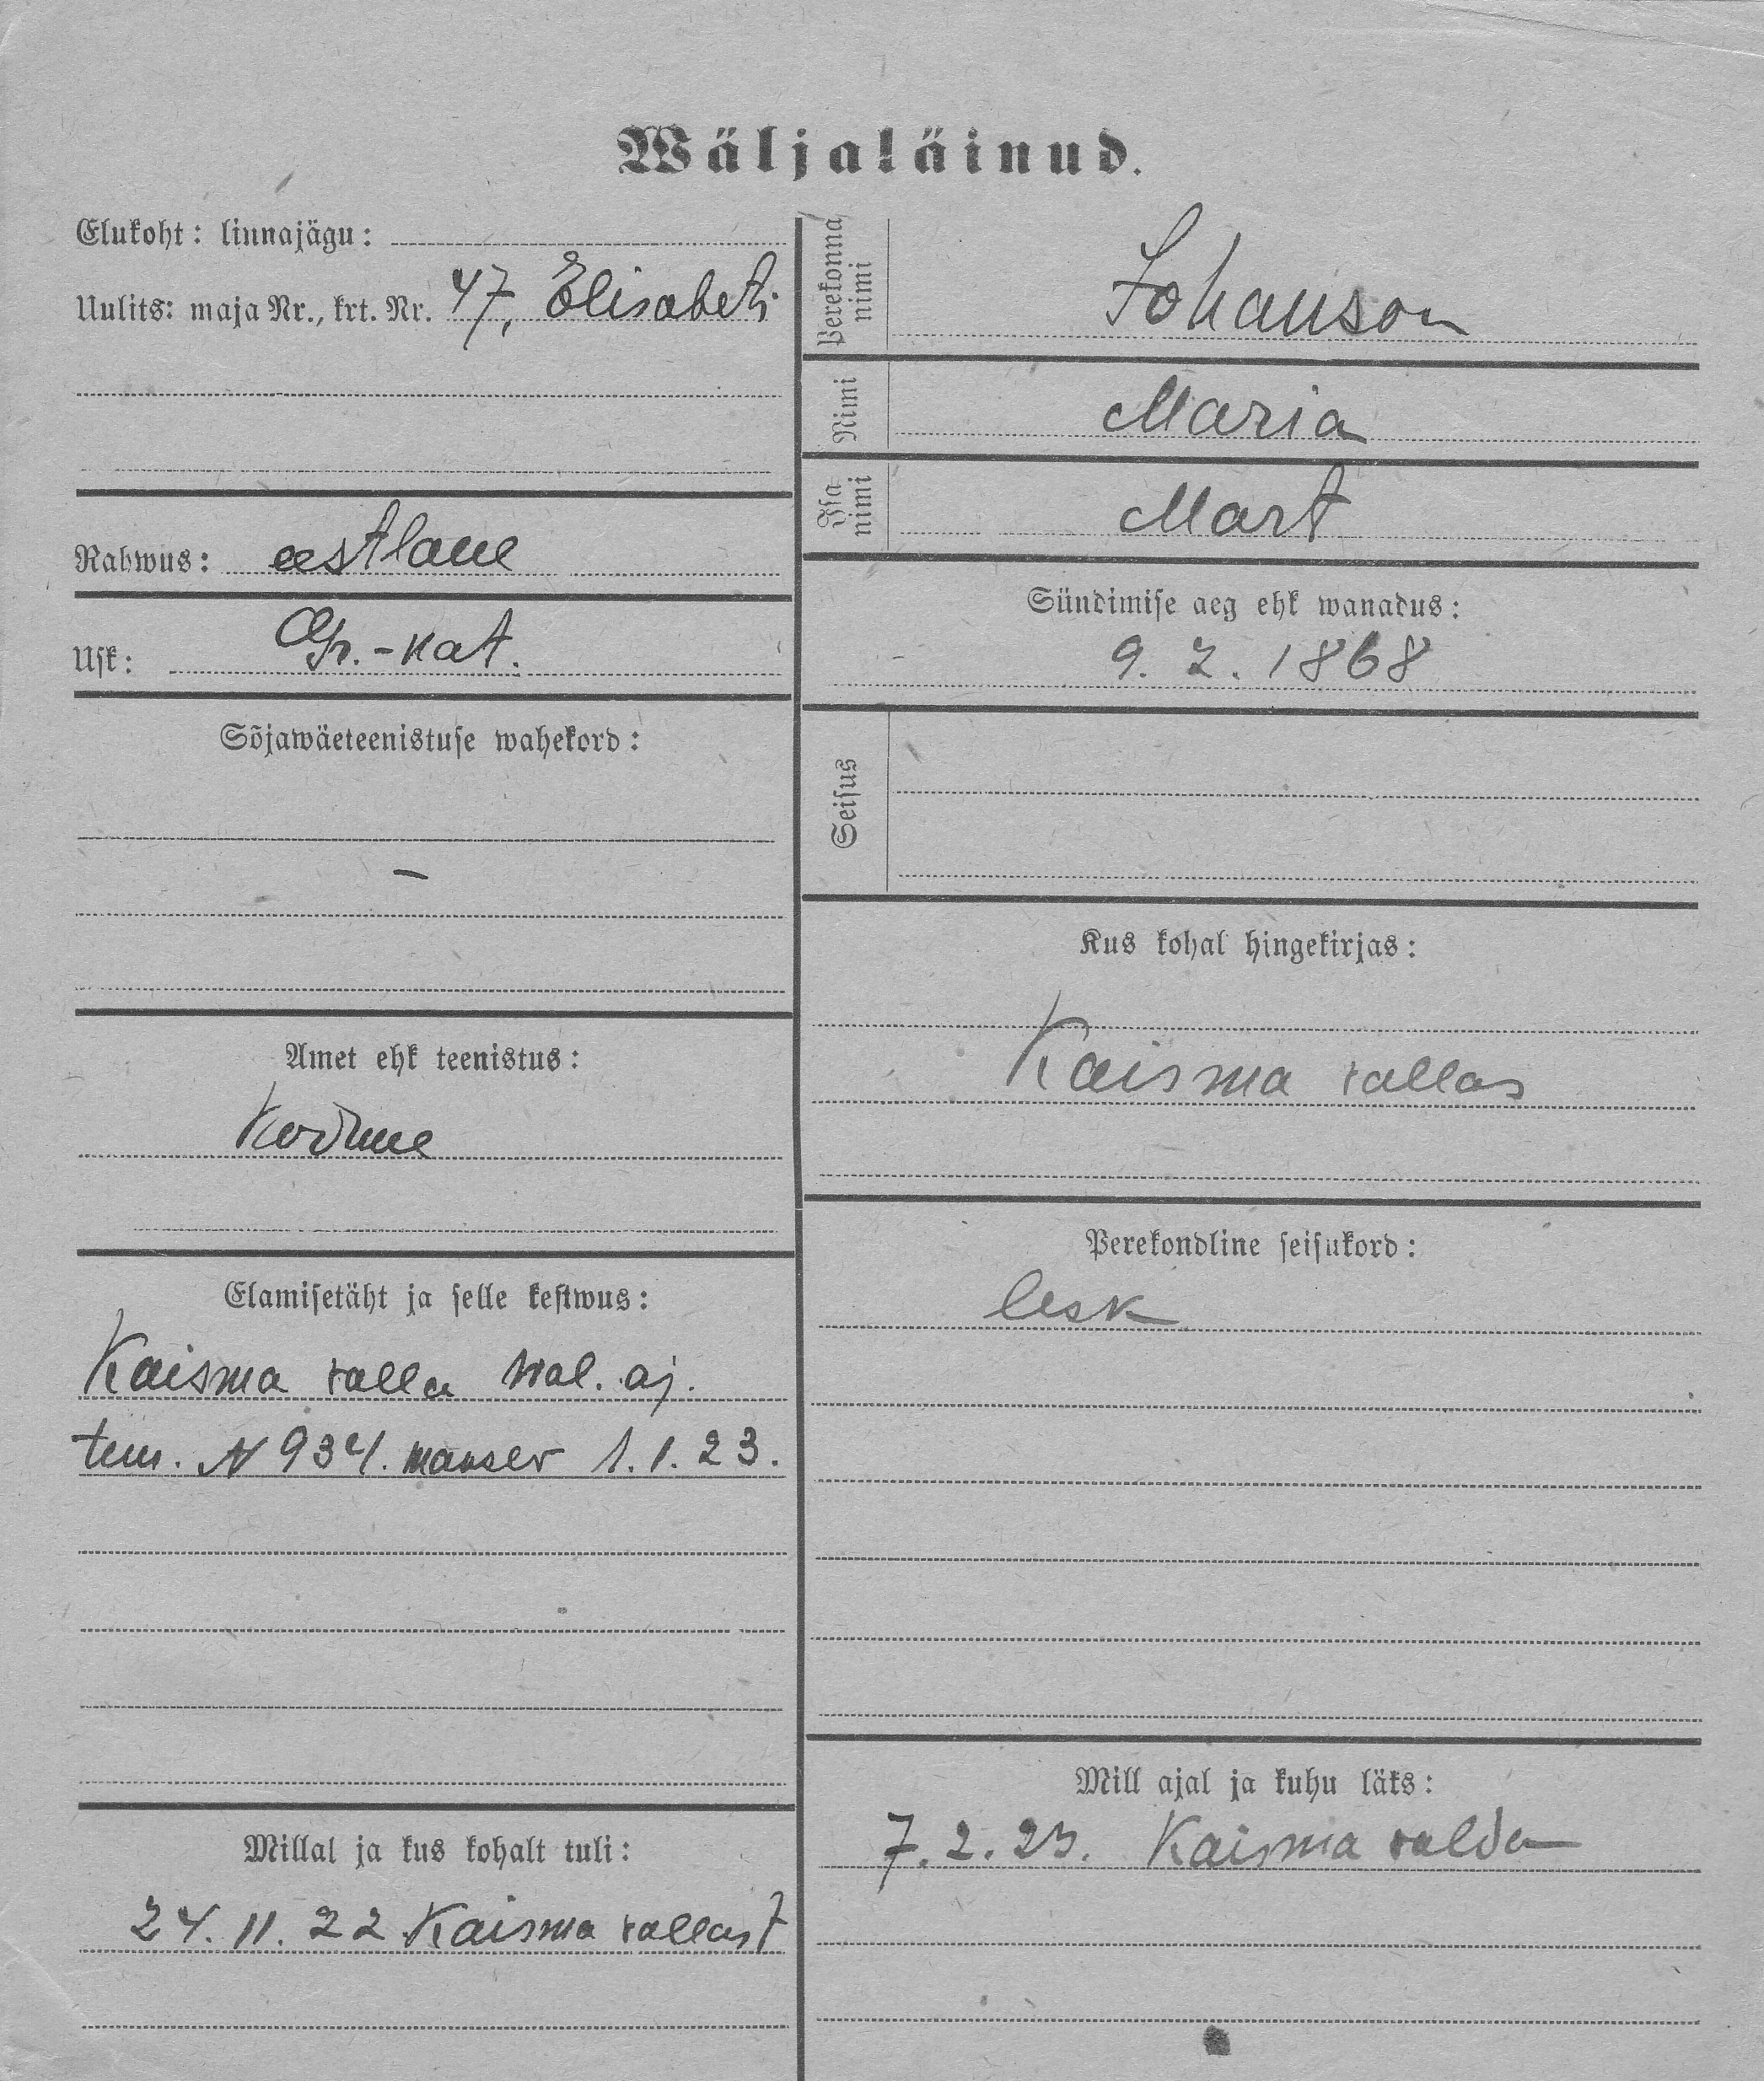 Wäljaläinud.
Elukoht: linnajägu:
Uulits: maja Nr., krt. Nr. 47, Elisabeti
Rahwus: eestlane
Usk: Gr.-kat.
Sõjawäeteenistuse wahekord:
–
Amet ehk teenistus:
Elamisetäht ja selle kestwus:
Kaisma valla wal. aj.
tun. N 934. maksev 1.1.23.
Millal ja kus kohalt tuli:
24.11.22 Kaisma vallast
Perekonna nimi
Johanson
Nimi
Maria
Isa nimi
Mart
Sündimise aeg ehk wanadus:
9. 2. 1868
Seisus
Kus kohal hingekirjas:
Kaisma vallas
Perekondline seisukord:
lesk
Mill ajal ja kuhu läks:
7.2.23. Kaisma valda